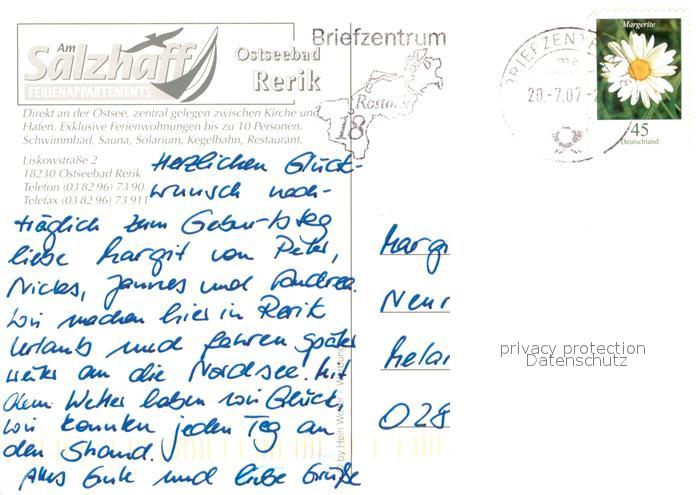 Am
Salzhaff
FERIENAPPARTEMENTS
Ostseebad
Rerik
Direkt an der Ostsee, zentral gelegen zwischen Kirche und
Hafen. Exklusive Ferienwohnungen bis zu 10 Personen.
Schwimmbad, Sauna, Solarium, Kegelbahn, Restaurant.
Liskowstraße 2
18230 Ostseebad Rerik
Telefon (03 82 96) 73 90
Telefax (03 82 96) 73 911
Briefzentrum
Rostock
18
BRIEFZENTR
ma
20.-7.07
Margerite
45
Deutschland
Herzlichen Glück-
wunsch nach-
träglich zum Geburtstag
liebe Margit von Peter,
Niclas, Jannes und Andrea.
Wir machen hier in Rerik
Urlaub und fahren später
weiter an die Nordsee. Mit
dem Wetter haben wir Glück,
wir konnten jeden Tag an
den Strand.
Alles Gute und liebe Grüße
by Hein
Margi
Neur
Melar
028
privacy protection
Datenschutz